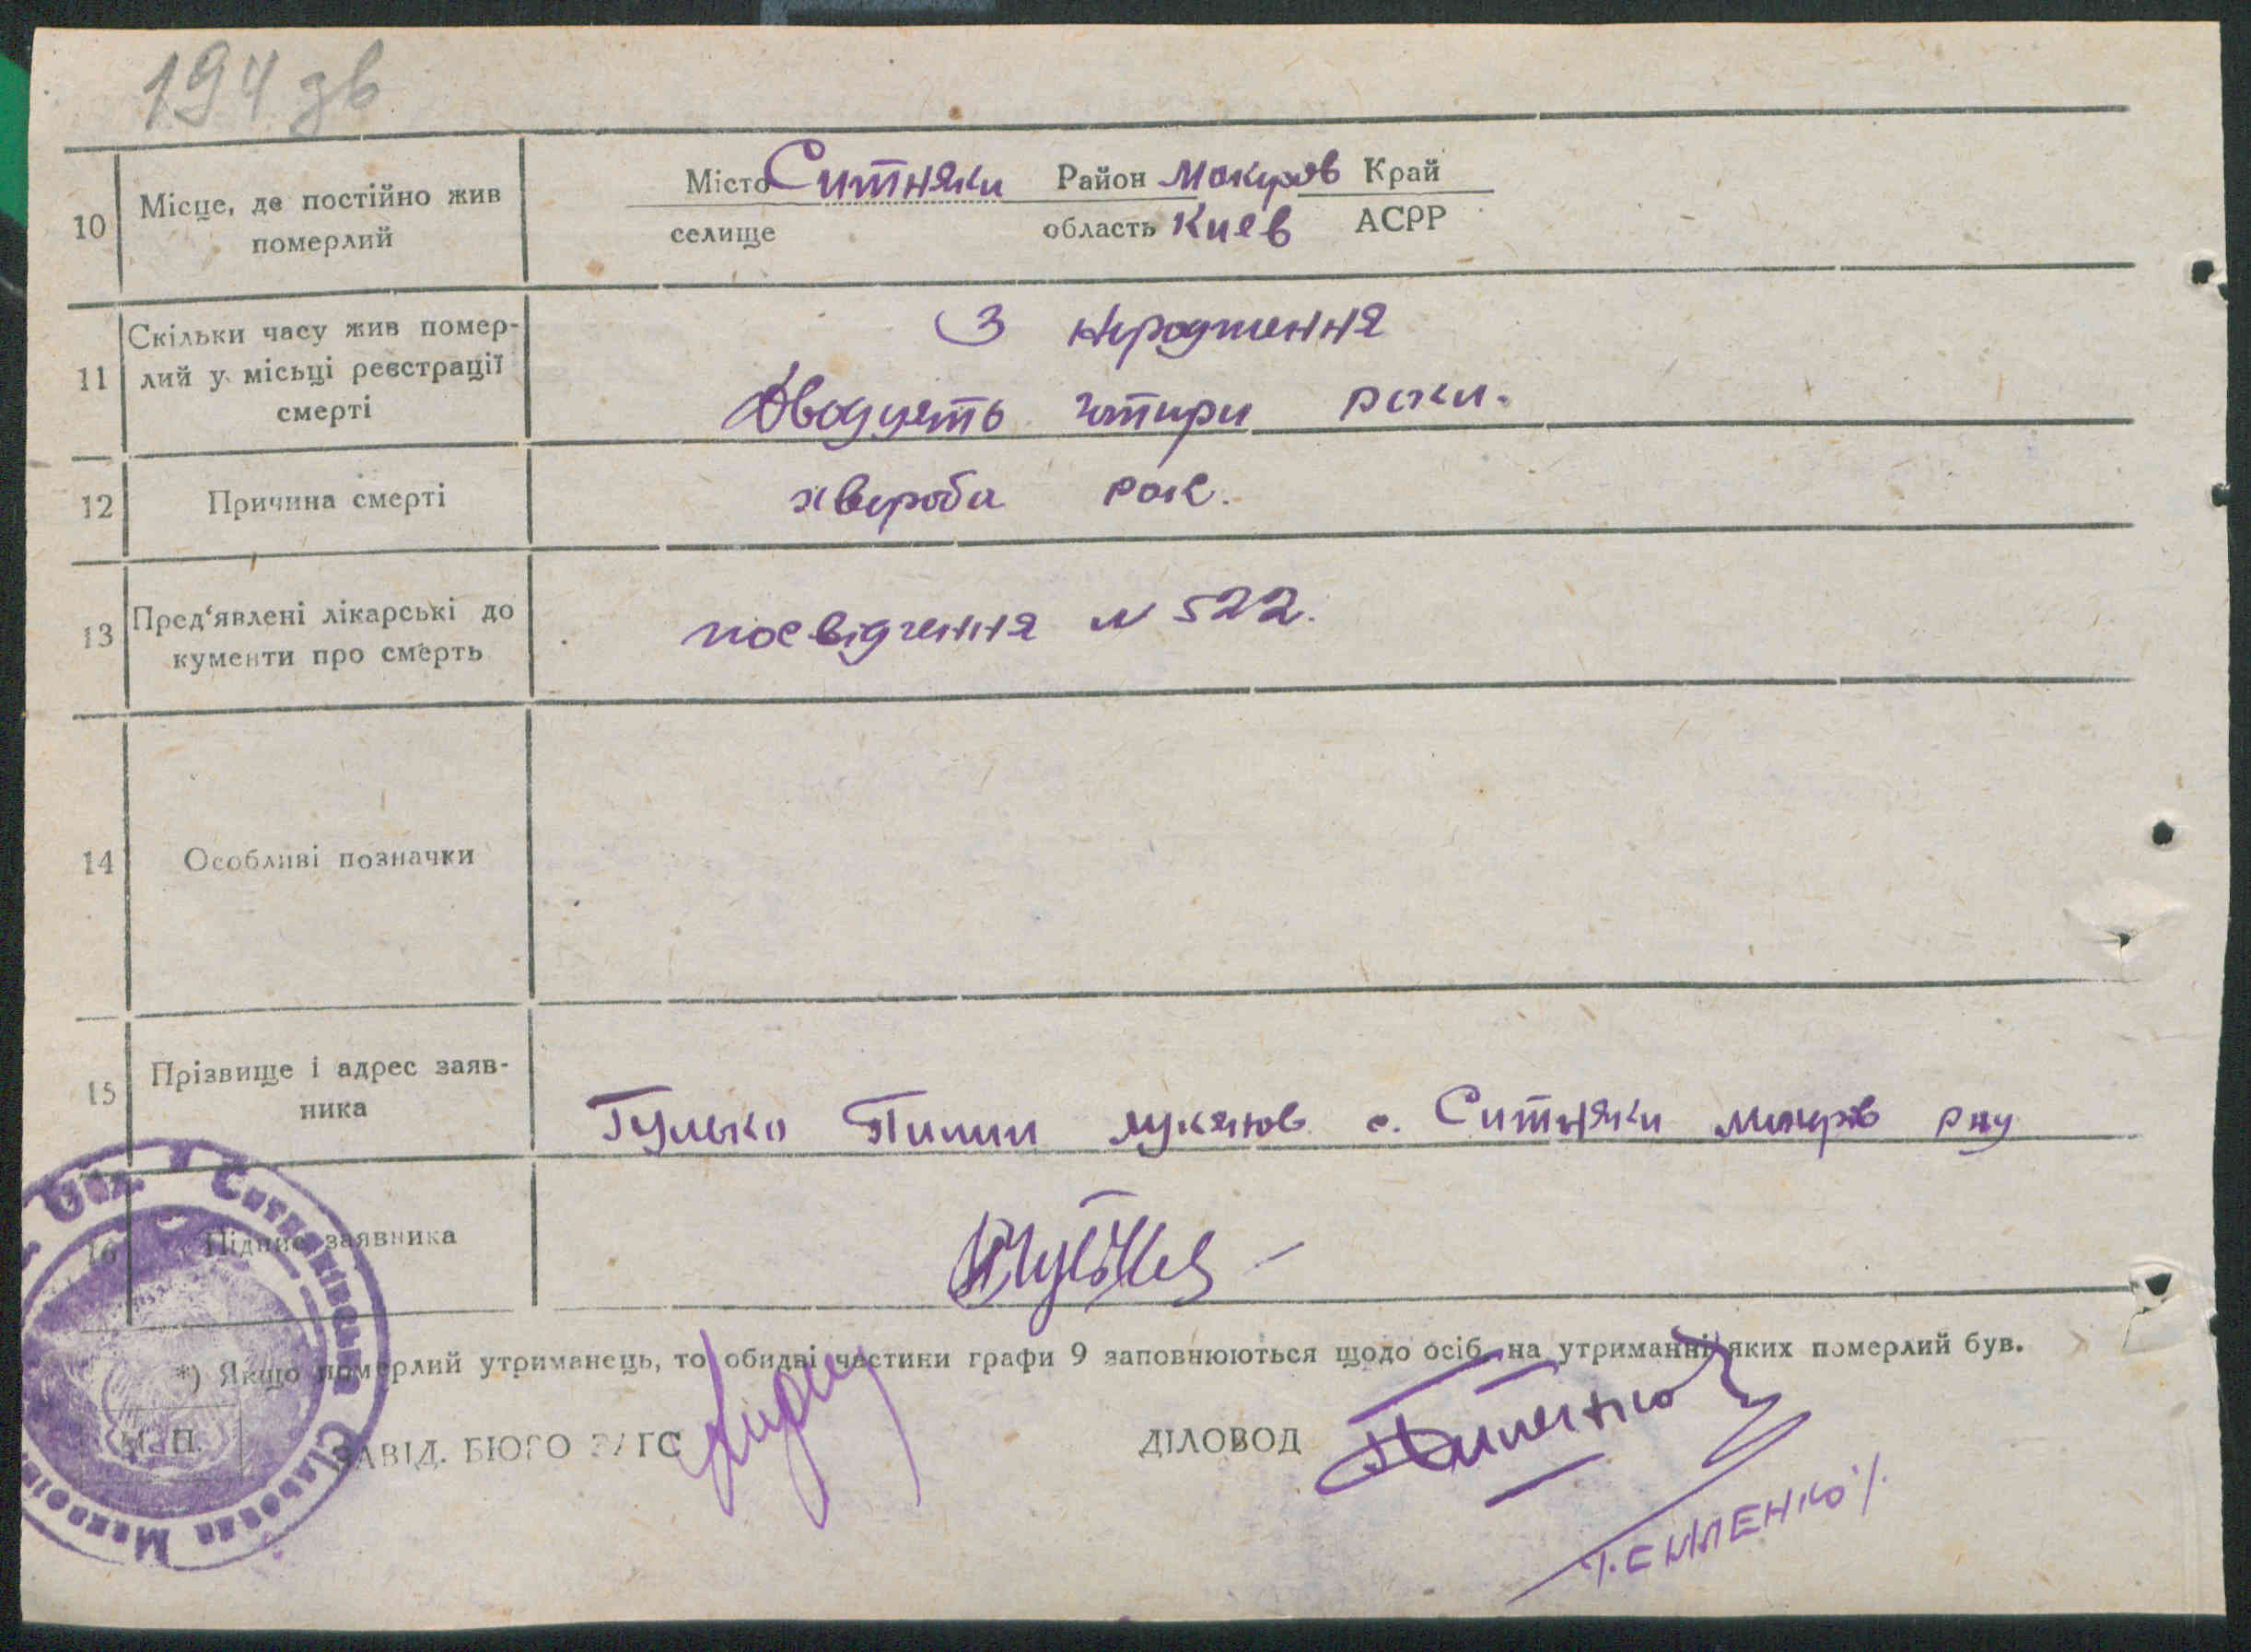 194 зв
10
Місце, де постійно жив
померлий
Місто Ситняки Район Макаров Край
селище область Киев АСРР
11
Скільки часу жив помер-
лий у місьці реєстрації
смерті
З народження
Двадцять чотири роки.
12
Причина смерті
хвороба рак.
13
Пред'явлені лікарські до
кументи про смерть
посвідчення N 522.
14
Особливі позначки
15
Прізвище і адрес заяв-
ника
Гулько Пилип лукянов с. Ситняки макаров рну
16
Підпис заявника
*) Якщо померлий утриманець, то обидві частини графи 9 заповнюються щодо осіб, на утриманні яких померлий був.
М. П.
ЗАВІД. БЮРО ЗАГС
ДІЛОВОД
Ситняківська Сільрада Макарів